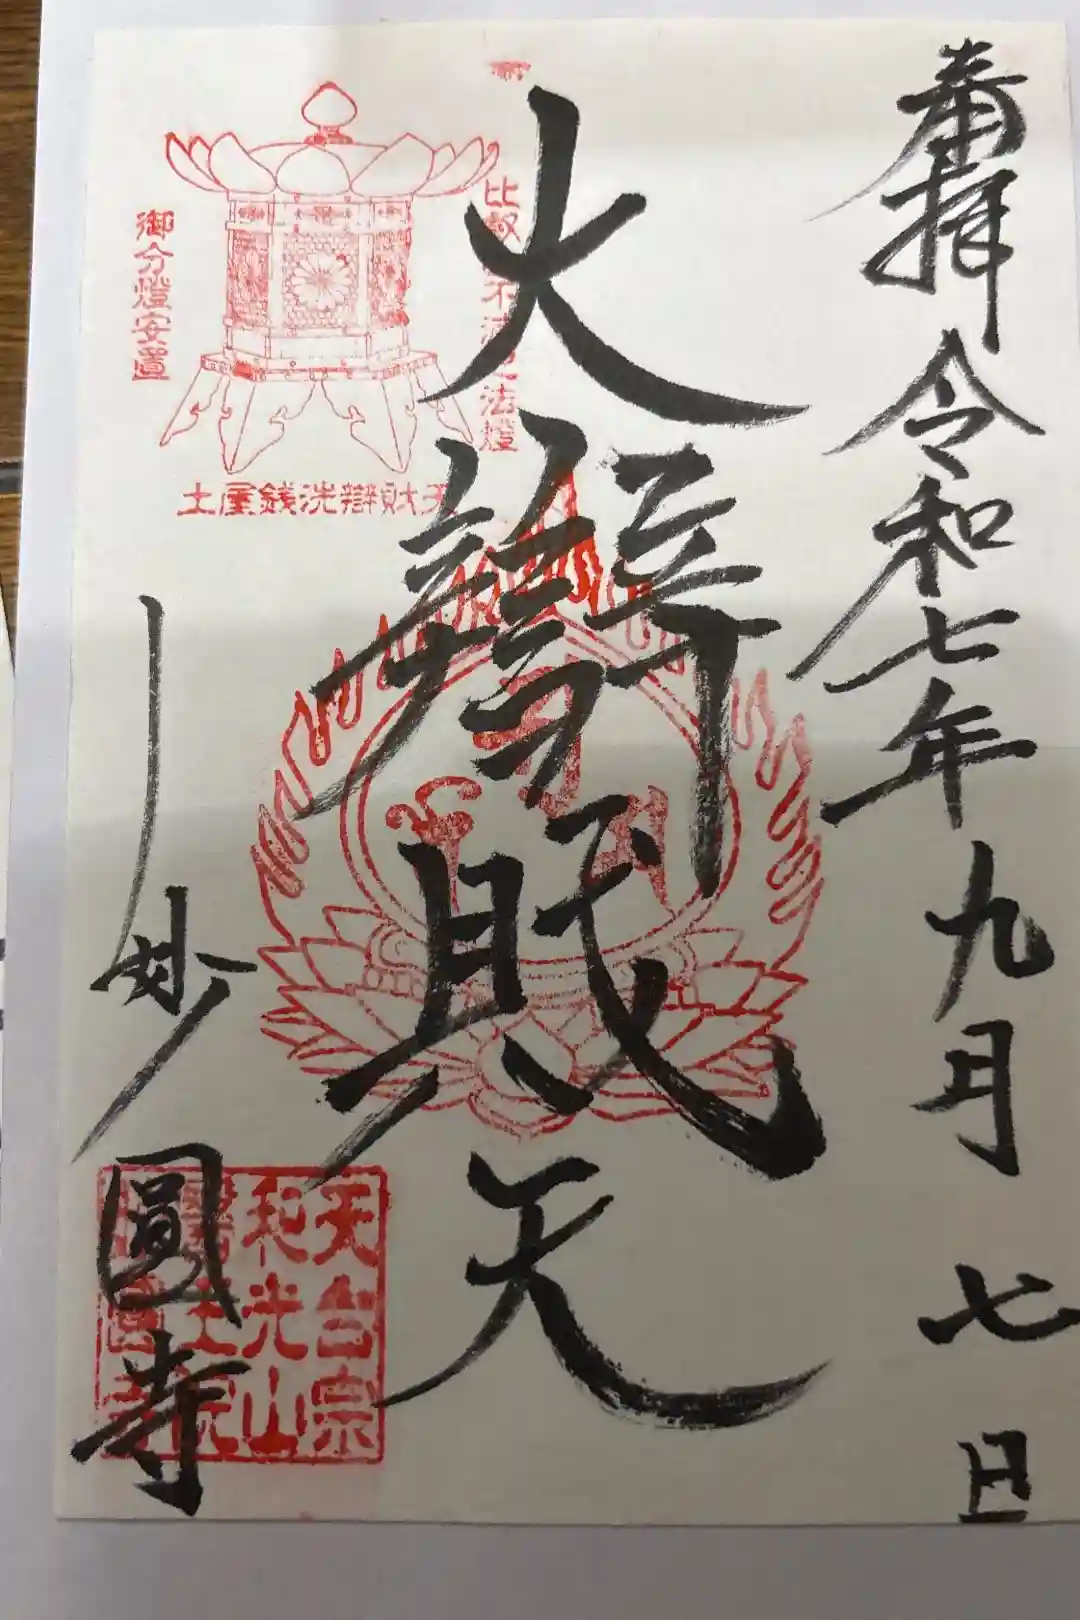 奉拝 令和七年 九月 七日
大辨財天
妙圓寺
比叡 不滅 法燈
御分燈安置
土屋銭洗辯財天
天台宗
和光山